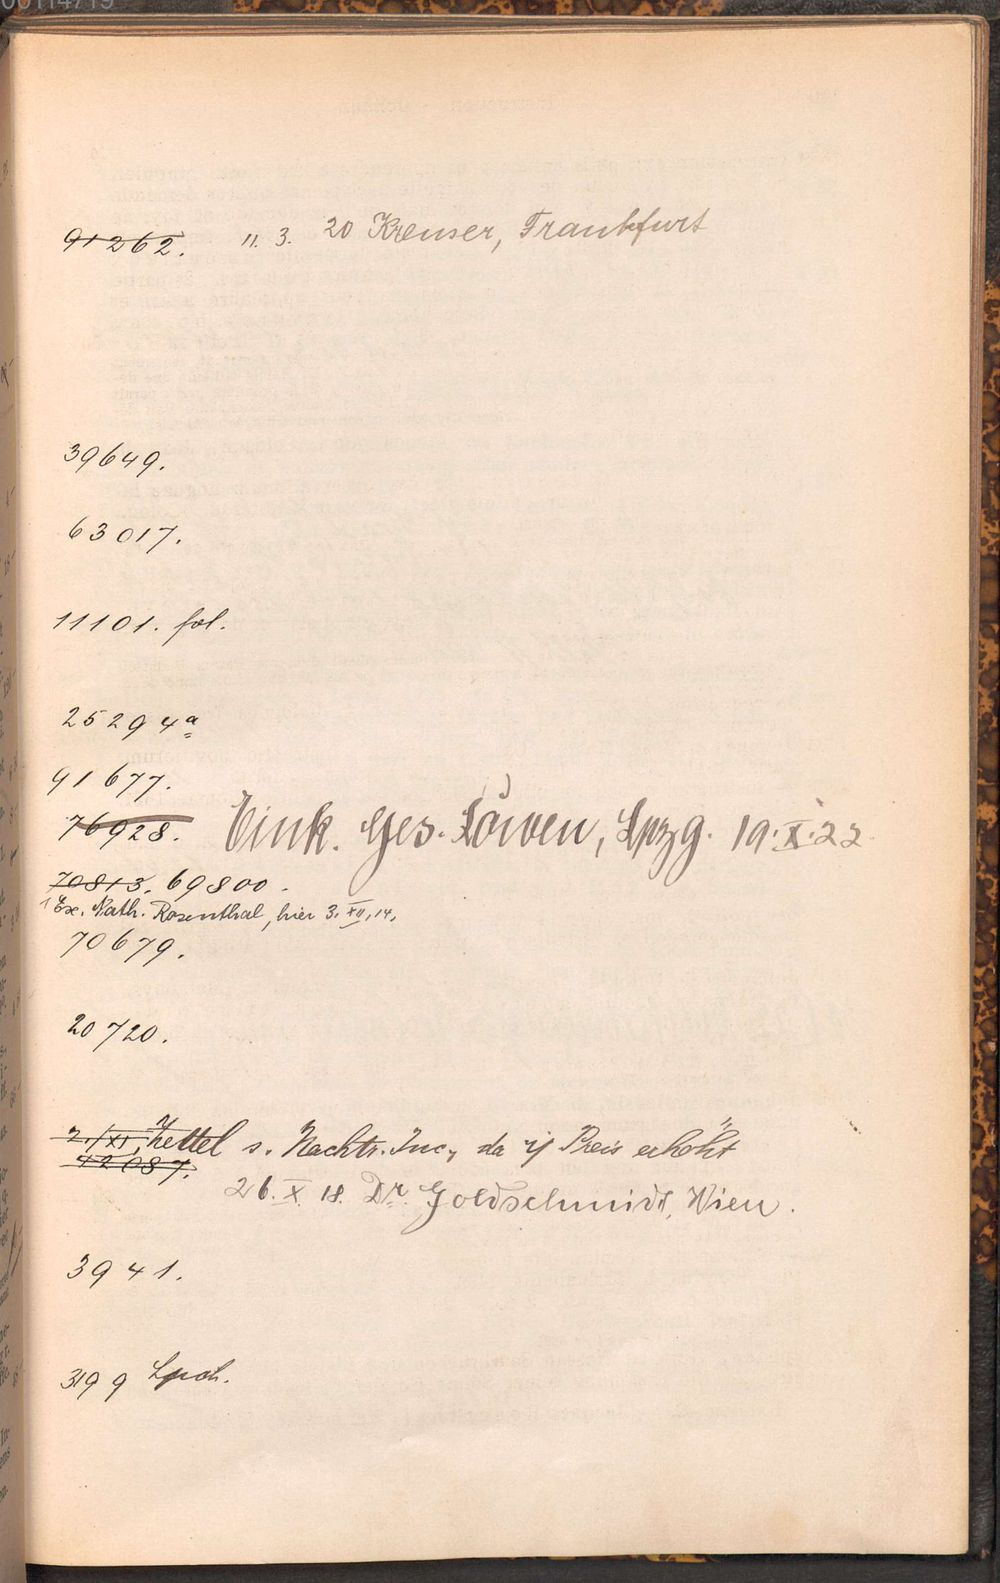 00114719
91262. 11. 3. 20 Kreuser, Frankfurt
39649.
63017.
11101. fol.
25294ª
91677.
76928. Eink. Ges. Löwen, Lpzg. 19.X.22
70813. 69800.
1 Ex. Nath. Rosenthal, hier 3. XII. 14.
70679.
20720.
2./XI, Zettel s. Nachtr. Inc., da Preis erhöht
42087.
26. X. 18. Dr. Goldschmidt, Wien.
3941.
3199